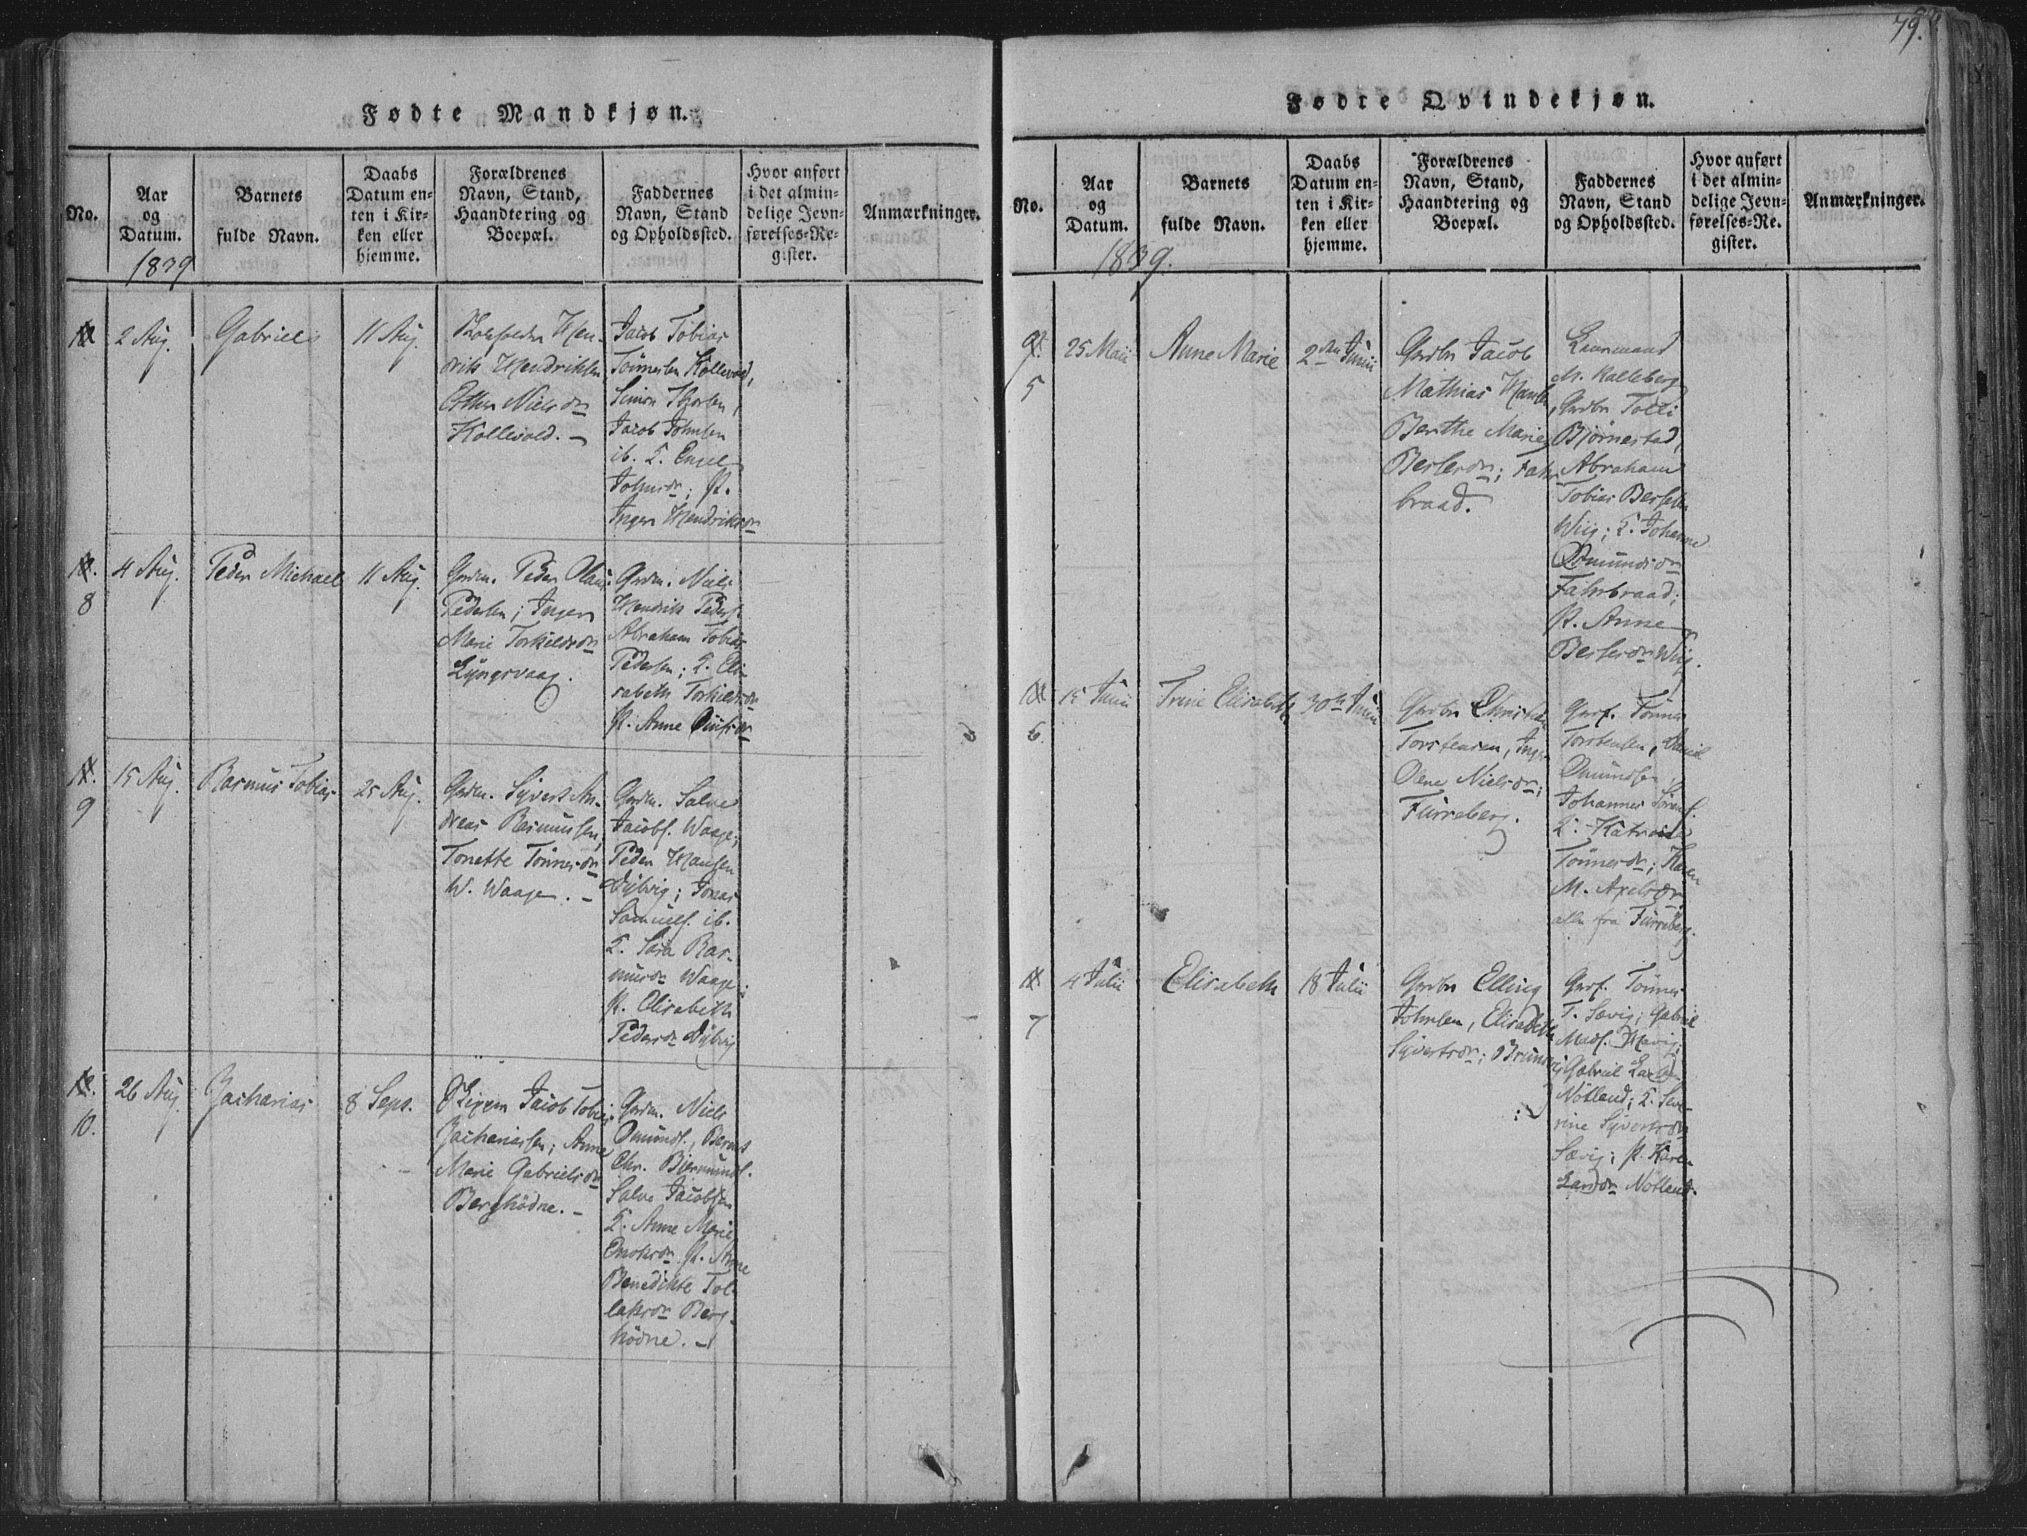 79.
Fødte Mandkjøn.
No.
Aar
og
Datum.
1839
Barnets
fulde Navn.
Daabs
Datum en-
ten i Kir-
ken eller
hjemme.
Forældrenes
Navn, Stand,
Haandtering og
Boepæl.
Faddernes
Navn, Stand
og Opholdssted.
Hvor anført
i det almin-
delige Jevn-
førelses-Re-
gister.
Anmærkninger.
2 Aug.
Gabriel
11 Aug.
Hen-
drik Hendriksen
Esther Nielsdr
Kollevold. –
Jacob Tobias
Tønnesen Kollevold,
Simon
Jacob Johnsen
ib. T. Engel
Johnsdr; P.
Inger Hendriksdr
8
4 Aug.
Peder Michael
11 Aug.
Grdm. Peder Olaus
Pedersen; Inger
Marie Torkildsdr
Lyngsvaag.
Grdm. Niels
Hendrik Peders.
Abraham Tobias
Pedersen; T. Eli-
sabeth Torkildsdr
P. Anne
9
15 Aug.
Rasmus Tobias
25 Aug.
Grdm. Syvert An-
dreas Rasmussen,
Tonette Tønnesdr
W. Waage. –
Grdm. Salve
Jacobs. Waage;
Peder Hansen
Dybvig; Jonas
Samuels. ib.
T. Sara Ras-
musdr Waage;
P. Elisabeth
Pedersdr Dybvig
10.
26 Aug.
Zacharias
8 Sept.
Jacob Tobias
Zachariassen; Anne
Marie Gabrielsdr
Berghødne. –
Grdm. Niels
Omunds., Bernt
Chr.
Salve Jacobsen
T. Anne Marie
Enoksdr P. Anne
Benedikte Tol-
laksdr Berg-
hødne. –
Fødte Qvindekjøn.
No.
Aar
og
Datum.
1839.
Barnets
fulde Navn.
Daabs
Datum en-
ten i Kir-
ken eller
hjemme.
Forældrenes
Navn, Stand,
Haandtering og
Boepæl.
Faddernes
Navn, Stand
og Opholdssted.
Hvor anført
i det almin-
delige Jevn-
førelses-Re-
gister.
Anmærkninger.
5
25 Maii
Anne Marie
2den Junii
Grdbr Jacob
Mathias Hansen,
Berthe Marie
Bersesdr; Fahr
braad.
Lensmand
M. Kalleberg
Grdbr Tolli
Bjørnestad,
Abraham
Tobias Bersesen
Wiig; T. Johanne
Omundsdr
Fahrbraad;
P. Anne
Bersesdr Wiig.
6.
15 Junii
Trine Elisabeth
30te Junii
Grdbr Christian
Torstensen, Inger
Oene Nielsdr;
Furreberg.
Grdf. Tønnes
Torstensen, Daniel
Omundsen
Johannes Sørens.
T. Katrine
Tønnesdr; Karen
M. Axelsdr
alle fra Furreberg.
7
4 Julii
Elisabeth
18 Julii
Grdbr Elling
Johnsen, Elisabeth
Syvertsdr; Brunvig
Grdf. Tønnes
T. Sævig; Gabriel
Mads. Havig;
Gabriel Lars.
Nøtland; T. Seve-
rine Syvertsdr
Sævig; P. Karen
Larsdr Nøtland.